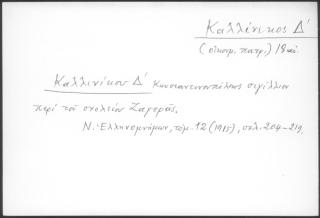 Καλλίνικος Δ΄
(οἰκουμ. πατρ.) 18 αἰ.
Καλλινίκου Δ΄ Κωνσταντινουπόλεως σιγίλλιον
περὶ τοῦ σχολείου Ζαγορᾶς.
Ν. Ἑλληνομνήμων, τόμ. 12 (1915), σελ. 204-219.